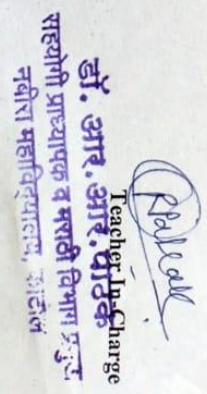 Teacher In-Charge
डॉ. आर.आर.पाठक
सहयोगी प्राध्यापक व मराठी विभाग प्रमुख
नबीरा महाविद्यालय, काटोल